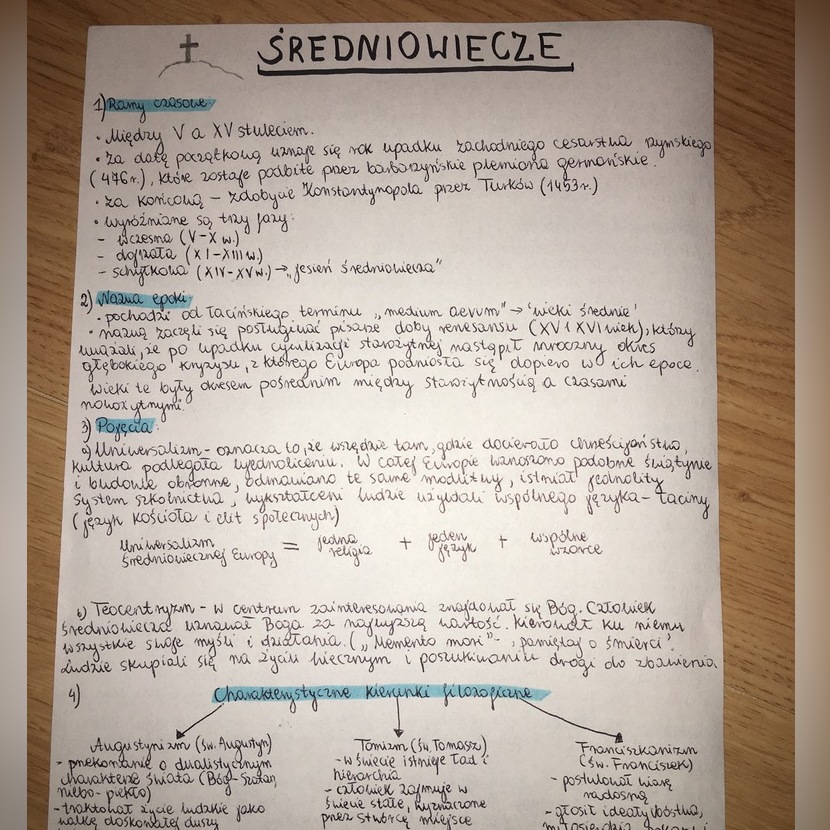 ŚREDNIOWIECZE
1) Ramy czasowe
• Między V a XV stuleciem.
• Za datę początkową uznaje się rok upadku zachodniego cesarstwa rzymskiego
(476r.), które zostaje podbite przez barbarzyńskie plemiona germańskie.
• za końcową – zdobycie Konstantynopola przez Turków (1453r.)
• wyróżniane są trzy fazy:
- wczesna (V-X w.)
- dojrzała (XI-XIII w.)
- schyłkowa (XIV-XV w.) → „jesień średniowiecza"
2) Nazwa epoki
• pochodzi od łacińskiego terminu „medium aevum" → 'wieki średnie'
• nazwą zaczęli się posługiwać pisarze doby renesansu (XV i XVI wiek), którzy
uważali, że po upadku cywilizacji starożytnej nastąpił mroczny okres
głębokiego kryzysu, z którego Europa podniosła się dopiero w ich epoce.
Wieki te były okresem pośrednim między starożytnością a czasami
nowożytnymi.
3) Pojęcia:
a) Uniwersalizm - oznacza to, że wszędzie tam, gdzie docierało chrześcijaństwo,
kultura podlegała ujednoliceniu. W całej Europie wznoszono podobne świątynie
i budowle obronne, odmawiano te same modlitwy, istniał jednolity
system szkolnictwa, wykształceni ludzie używali wspólnego języka - łaciny
(język kościoła i elit społecznych)
Uniwersalizm średniowiecznej Europy = jedna religia + jeden język + wspólne wzorce
b) Teocentryzm - w centrum zainteresowania znajdował się Bóg. Człowiek
średniowiecza uznawał Boga za najwyższą wartość. Kierował ku niemu
wszystkie swoje myśli i działania. („Memento mori" - 'pamiętaj o śmierci'.
Ludzie skupiali się na życiu wiecznym i poszukiwaniu drogi do zbawienia.
4) Charakterystyczne kierunki filozoficzne
Augustynizm (św. Augustyn)
- przekonanie o dualistycznym
charakterze świata (Bóg-Szatan,
niebo-piekło)
- traktował życie ludzkie jako
walkę doskonałej duszy
Tomizm (św. Tomasz)
- w świecie istnieje ład i
hierarchia
- człowiek zajmuje w
świecie stałe, wyznaczone
przez stwórcę miejsce
Franciszkanizm
(św. Franciszek)
- postulował wiarę
radosną
- głosił ideały ubóstwa,
miłosierdzia